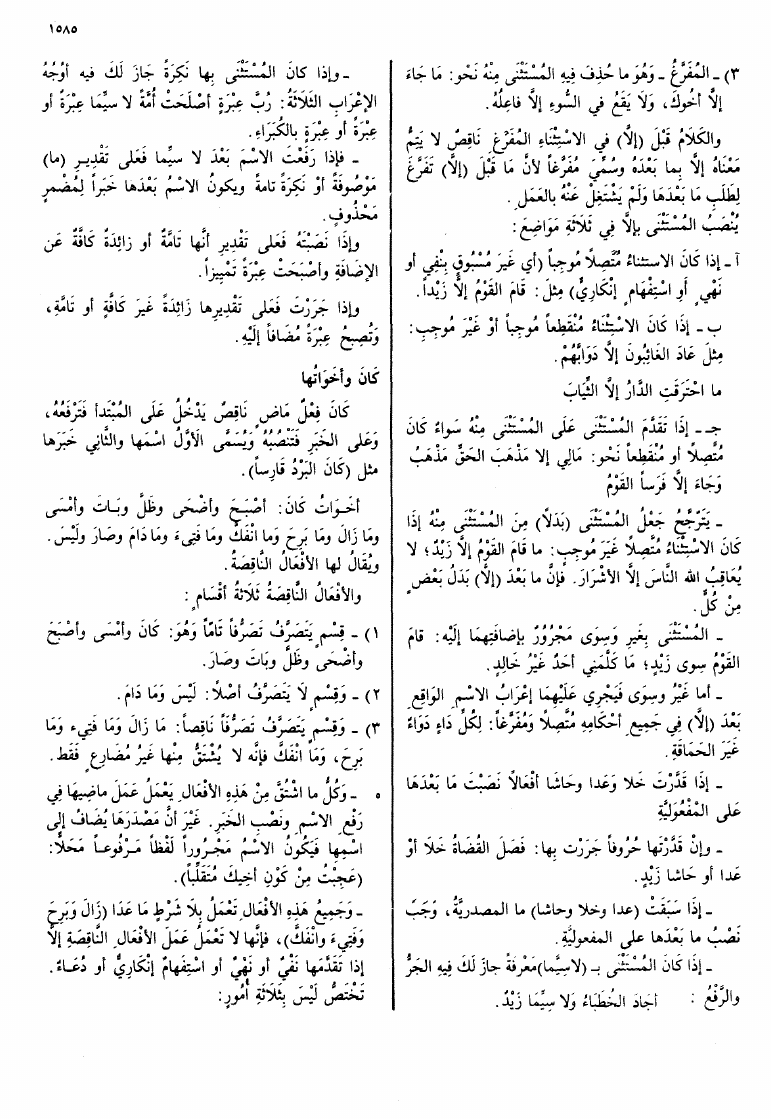 ١٥٨٥
٣) ـ المُفَرَّغُ ـ وَهُوَ ما حُذِفَ فِيهِ المُسْتَثْنى مِنْهُ نَحْوَ: مَا جَاءَ
إِلَّا أَخُوكَ، وَلَا يَقَعُ في السُّوءِ إِلَّا فاعِلُهُ.
والكَلامُ قَبْلَ (إِلَّا) في الاسْتِثْنَاءِ المُفَرَّغِ نَاقِصٌ لا يَتِمُّ
مَعْنَاهُ إِلَّا بِما بَعْدَهُ وسُمِّيَ مُفَرَّغاً لأَنَّ مَا قَبْلَ (إِلَّا) تَفَرَّغَ
لِطَلَبِ مَا بَعْدَهَا وَلَمْ يَشْتَغِلْ عَنْهُ بالعَمَلِ.
يُنْصَبُ المُسْتَثْنَى بإلَّا فِي ثَلَاثَةِ مَوَاضِعَ:
آ ـ إِذَا كَانَ الاستثناءُ مُتَّصِلًا مُوجباً (أي غَيرَ مُسْبُوقٍ بِنَفْيٍ أو
نَهْيٍ أَوِ اسْتِفْهَامٍ إِنْكَارِيٍّ) مِثلَ: قَامَ القَوْمُ إلَّا زَيْداً.
ب ـ إذَا كَانَ الاسْتِثْنَاءُ مُنْقَطِعاً مُوجباً أوْ غَيْرَ مُوجِبٍ:
مِثلَ عَادَ الغَائِبُونَ إلَّا دَوَابَّهُمْ.
ما احْتَرَقَتِ الدَّارُ إلَّا الثِّيَابَ
جـ ـ إذَا تَقَدَّمَ المُسْتَثْنَى عَلَى المُسْتَثْنَى مِنْهُ سَواءً كَانَ
مُتَّصِلًا أو مُنْقَطِعاً نَحْوَ: مَالِي إلا مَذْهَبَ الحَقِّ مَذْهَبُ
وَجَاءَ إلَّا فَرَساً القَوْمُ
ـ يَتَرَجَّحُ جَعْلُ المُسْتَثْنَى (بَدَلًا) مِنَ المُسْتَثْنَى مِنْهُ إذَا
كَانَ الاسْتِثْنَاءُ مُتَّصِلًا غَيرَ مُوجِبٍ: ما قامَ القَوْمُ إلَّا زَيْدٌ؛ لا
يُعَاقِبُ الله النَّاسَ إلَّا الأشْرَارَ. فإنَّ ما بَعْدَ (إلَّا) بَدَلُ بَعْضٍ
مِنْ كُلٍّ.
ـ المُسْتَثْنَى بِغَيرِ وَسِوَى مَجْرُورٌ بإضَافَتِهِمَا إلَيْهِ: قامَ
القَوْمُ سِوى زَيْدٍ؛ مَا كَلَّمَنِي أحَدٌ غَيْرُ خَالِدٍ.
ـ أما غَيْرُ وسِوَى فَيَجْرِي عَلَيْهِمَا إعْرَابُ الاسْمِ الوَاقِعِ
بَعْدَ (إلَّا) فِي جَمِيعِ أحْكَامِهِ مُتَّصِلًا وَمُفَرَّغاً: لِكُلِّ دَاءٍ دَوَاءٌ
غَيرَ الحَمَاقَةِ.
ـ إذَا قَدَّرْتَ خَلا وَعَدا وحَاشا أفْعَالاً نَصَبْتَ مَا بَعْدَهَا
عَلى المَفْعُولِيَّةِ
ـ وإنْ قَدَّرْتَها حُرُوفاً جَرَرْتَ بِها: فَصَلَ القُضَاةُ خَلَا أوْ
عَدا أو حَاشا زَيْدٍ.
ـ إذَا سَبَقَتْ (عدا وخلا وحاشا) ما المصدريَّةُ، وَجَبَ
نَصْبُ ما بَعْدَها على المفعوليَّةِ.
ـ إذَا كَانَ المُسْتَثْنَى بـ (لاسِيَّما) مَعْرِفَةً جازَ لَكَ فِيهِ الجَرُّ
والرَّفْعُ : أجَادَ الخُطَبَاءُ وَلا سِيَّمَا زَيْدٌ.
ـ وإذا كَانَ المُسْتَثْنَى بِها نَكِرَةً جَازَ لَكَ فيه أوْجُهُ
الإعْرَابِ الثَّلاثَةُ: رُبَّ عِبْرَةٍ أصْلَحَتْ أُمَّةً لا سيَّمَا عِبْرَةٌ أو
عِبْرَةً أو عِبْرَةٍ بالكُبَرَاءِ.
ـ فإذا رَفَعْتَ الاسْمَ بَعْدَ لا سيَّما فَعَلى تَقْدِيرِ (ما)
مَوْصُوفَةً أوْ نَكِرَةً تامةً ويكونُ الاسْمُ بَعْدَها خَبَراً لِمُضْمَرٍ
مَحْذُوفٍ.
وإذَا نَصَبْتَهُ فَعَلى تَقْدِيرِ أنَّها تَامَّةٌ أو زائِدَةٌ كَافَّةٌ عَنِ
الإضَافَةِ وأَصْبَحَتْ عِبْرَةً تَمْيِيزاً.
وإذا جَرَرْتَ فَعَلى تَقْدِيرِها زَائِدَةً غَيرَ كَافَّةٍ أو تَامَّةٍ،
وَتُصبِحُ عِبْرَةٍ مُضَافاً إلَيْهِ.
كَانَ وأخَوَاتُها
كَانَ فِعْلٌ مَاضٍ نَاقِصٌ يَدْخُلُ عَلَى المُبْتَدأ فَتَرْفَعُهُ،
وَعَلى الخَبَرِ فَتَنْصُبُهُ وَيُسَمَّى الأوَّلُ اسْمَها والثَّانِي خَبَرَها
مثل (كَانَ البَرْدُ قَارِساً).
أخَـوَاتُ كَانَ: أصْبَـحَ وَأضْحَى وظَلَّ وبَـاتَ وأمْسَى
ومَا زَالَ ومَا بَرِحَ وَما انْفَكَّ ومَا فَتِىءَ ومَا دَامَ وصَارَ ولَيْسَ.
ويُقَالُ لها الأفْعَالُ النَّاقِصَةُ.
والأفْعَالُ النَّاقِصَةُ ثَلاثَةُ أقْسَامٍ:
١) ـ قِسْمٍ يَتَصَرَّفُ تَصَرُّفاً تَامّاً وَهُوَ: كَانَ وأمْسَى وأصْبَحَ
وأضْحَى وظَلَّ وبَاتَ وصَارَ.
٢) ـ وَقِسْمٍ لا يَتَصَرَّفُ أصْلًا: لَيْسَ وَمَا دَامَ.
٣) ـ وَقِسْمٍ يَتَصَرَّفُ تَصَرُّفاً نَاقِصاً: مَا زَالَ وَمَا فَتِيء وَمَا
بَرِحَ، وَمَا انْفَكَّ فإنَّه لا يُشْتَقُّ مِنْها غَيرُ مُضَارِعٍ فَقَط.
ه ـ وَكُلُّ ما اشْتُقَّ مِنْ هَذِهِ الأفْعَالِ يَعْمَلُ عَمَلَ ماضِيهَا فِي
رَفْعِ الاسْمِ ونَصْبِ الخَبَرِ. غَيرَ أنَّ مَصْدَرَها يُضَافُ إلى
اسْمِها فَيَكُونُ الاسْمُ مَجْـرُوراً لَفْظاً مَـرْفُوعـاً مَحَلًّا:
(عَجِبْتُ مِنْ كَوْنِ أخِيكَ مُتَقَلِّباً).
ـ وَجَمِيعُ هَذِهِ الأفْعَالِ تَعْمَلُ بِلَا شَرْطٍ مَا عَدَا (زَالَ وَبَرِحَ
وَفَتِيءَ وَانْفَكَّ)، فَإِنَّها لا تَعْمَلُ عَمَلَ الأفْعَالِ النَّاقِصَةِ إلَّا
إذَا تَقَدَّمَها نَفْيٌ أو نَهْيٌ أو اسْتِفْهَامٌ إنْكَارِيٌّ أو دُعَـاءٌ.
تَخْتَصُّ لَيْسَ بِثَلاثَةِ أُمُورٍ: